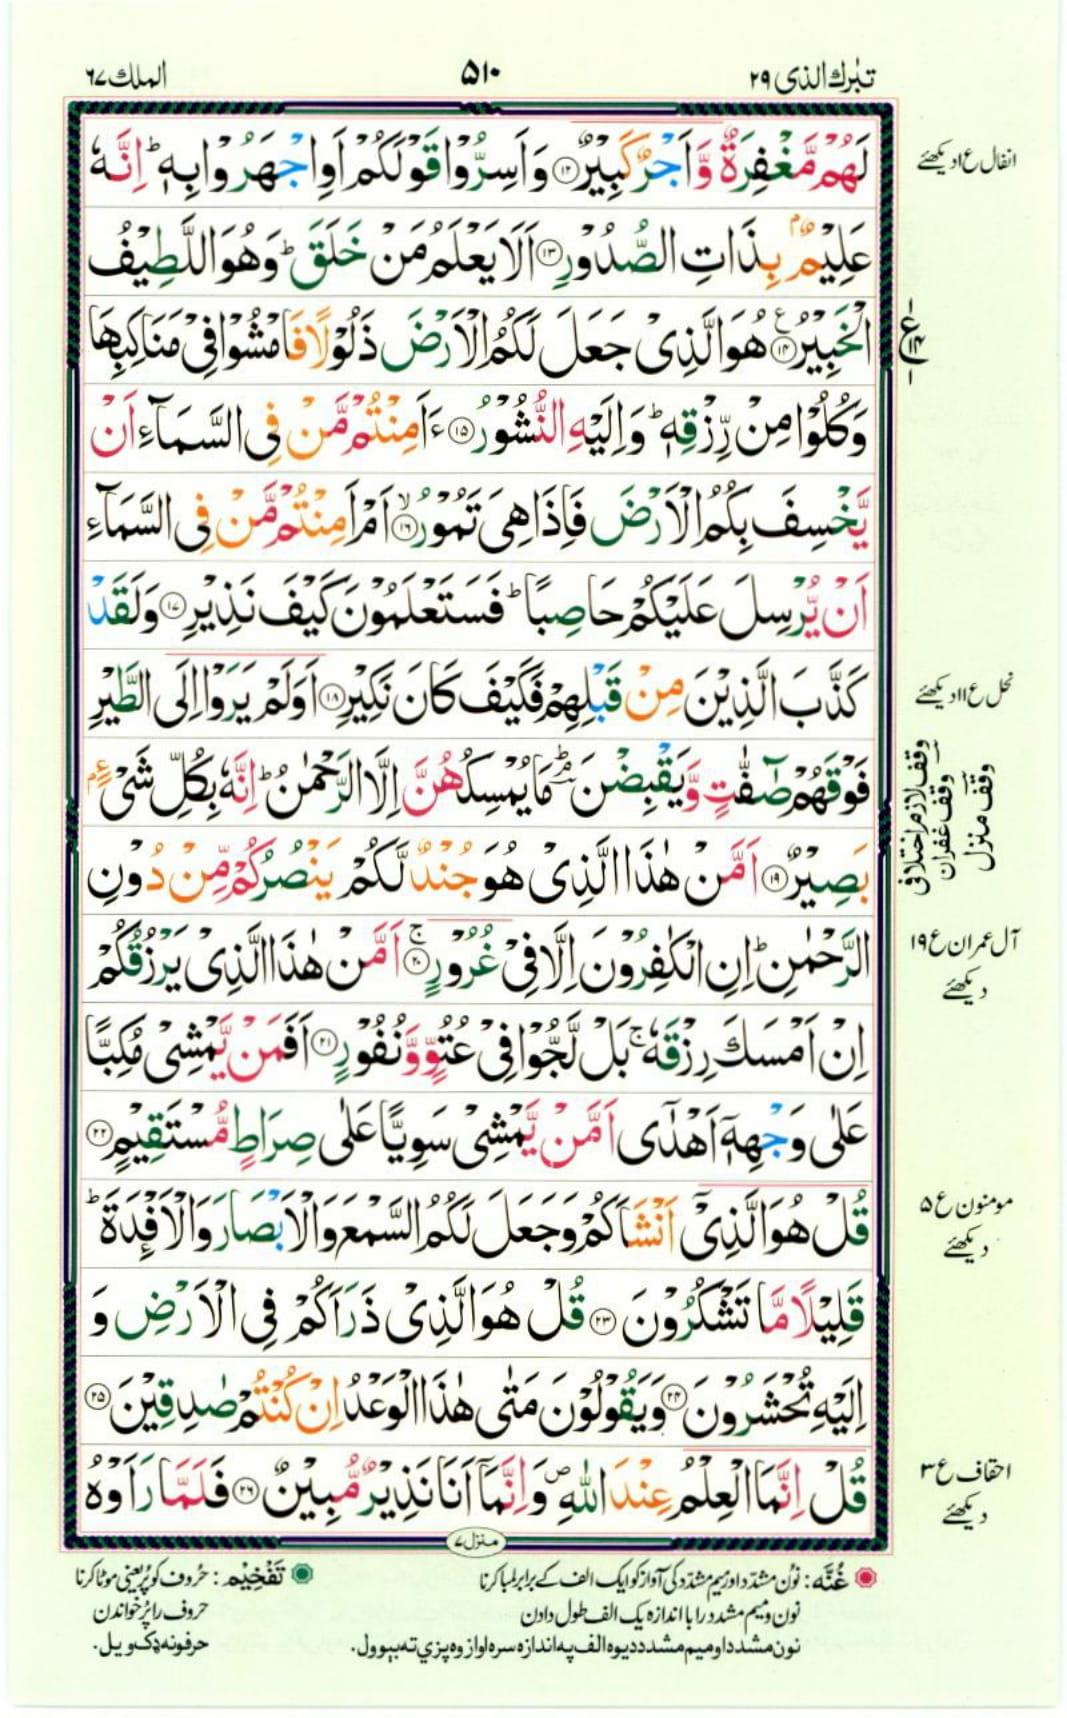 تبٰرك الذی ۲۹
۵۱۰
الملك ۶۷
لَهُمْ مَّغْفِرَةٌ وَّاَجْرٌ كَبِيْرٌ ۝۱۲ وَاَسِرُّوْا قَوْلَكُمْ اَوِ اجْهَرُوْا بِهٖ ؕ اِنَّهٗ
عَلِيْمٌۢ بِذَاتِ الصُّدُوْرِ ۝۱۳ اَلَا يَعْلَمُ مَنْ خَلَقَ ؕ وَهُوَ اللَّطِيْفُ
الْخَبِيْرُ ۝۱۴ هُوَ الَّذِیْ جَعَلَ لَكُمُ الْاَرْضَ ذَلُوْلًا فَامْشُوْا فِیْ مَنَاكِبِهَا
وَكُلُوْا مِنْ رِّزْقِهٖ ؕ وَاِلَيْهِ النُّشُوْرُ ۝۱۵ ءَاَمِنْتُمْ مَّنْ فِی السَّمَآءِ اَنْ
يَّخْسِفَ بِكُمُ الْاَرْضَ فَاِذَا هِیَ تَمُوْرُ ۙ۝۱۶ اَمْ اَمِنْتُمْ مَّنْ فِی السَّمَآءِ
اَنْ يُّرْسِلَ عَلَيْكُمْ حَاصِبًا ؕ فَسَتَعْلَمُوْنَ كَيْفَ نَذِيْرِ ۝۱۷ وَلَقَدْ
كَذَّبَ الَّذِيْنَ مِنْ قَبْلِهِمْ فَكَيْفَ كَانَ نَكِيْرِ ۝۱۸ اَوَلَمْ يَرَوْا اِلَی الطَّيْرِ
فَوْقَهُمْ صٰٓفّٰتٍ وَّيَقْبِضْنَ ؕ مَا يُمْسِكُهُنَّ اِلَّا الرَّحْمٰنُ ؕ اِنَّهٗ بِكُلِّ شَیْءٍۭ
بَصِيْرٌ ۝۱۹ اَمَّنْ هٰذَا الَّذِیْ هُوَ جُنْدٌ لَّكُمْ يَنْصُرُكُمْ مِّنْ دُوْنِ
الرَّحْمٰنِ ؕ اِنِ الْكٰفِرُوْنَ اِلَّا فِیْ غُرُوْرٍ ۚ۝۲۰ اَمَّنْ هٰذَا الَّذِیْ يَرْزُقُكُمْ
اِنْ اَمْسَكَ رِزْقَهٗ ۚ بَلْ لَّجُّوْا فِیْ عُتُوٍّ وَّنُفُوْرٍ ۝۲۱ اَفَمَنْ يَّمْشِیْ مُكِبًّا
عَلٰی وَجْهِهٖۤ اَهْدٰۤی اَمَّنْ يَّمْشِیْ سَوِيًّا عَلٰی صِرَاطٍ مُّسْتَقِيْمٍ ۝۲۲
قُلْ هُوَ الَّذِیْۤ اَنْشَاَكُمْ وَجَعَلَ لَكُمُ السَّمْعَ وَالْاَبْصَارَ وَالْاَفْـِٕدَةَ ؕ
قَلِيْلًا مَّا تَشْكُرُوْنَ ۝۲۳ قُلْ هُوَ الَّذِیْ ذَرَاَكُمْ فِی الْاَرْضِ وَ
اِلَيْهِ تُحْشَرُوْنَ ۝۲۴ وَيَقُوْلُوْنَ مَتٰی هٰذَا الْوَعْدُ اِنْ كُنْتُمْ صٰدِقِيْنَ ۝۲۵
قُلْ اِنَّمَا الْعِلْمُ عِنْدَ اللّٰهِ ۪ وَاِنَّمَاۤ اَنَا نَذِيْرٌ مُّبِيْنٌ ۝۲۶ فَلَمَّا رَاَوْهُ
منزل ۷
انفال ع۱ دیکھئے
ع ۱۴
نحل ع۱۱ دیکھئے
وقف لازم اختلافی
وقف غفران
وقف منزل
آل عمران ع ۱۹
دیکھئے
مومنون ع ۵
دیکھئے
احقاف ع ۳
دیکھئے
غُنَّه: نون مشدد اور میم مشدد کی آواز کو ایک الف کے برابر لمبا کرنا
نون و میم مشدد را با اندازہ یک الف طول دادن
نون مشدد او میم مشدد دیوہ الف په اندازه سره اواز وه پزي ته بېوول.
تَفْخِيْم: حُروف کو پُر یعنی موٹا کرنا
حروف را پُر خواندن
حرفونه ډک ویل.